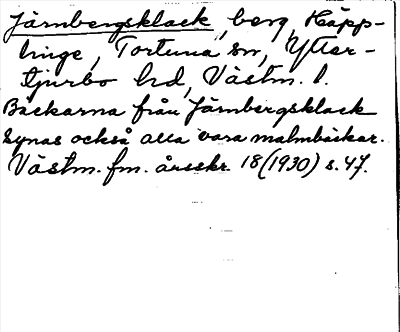 Järnbergsklack, berg, Käpp-
linge, Tortuna sn, Ytter-
tjurbo hd, Västm. l.
Bäckarna från Järnbergsklack
synas också alla vara malmbäckar.
Västm. fm. årsskr. 18 (1930) s. 47.